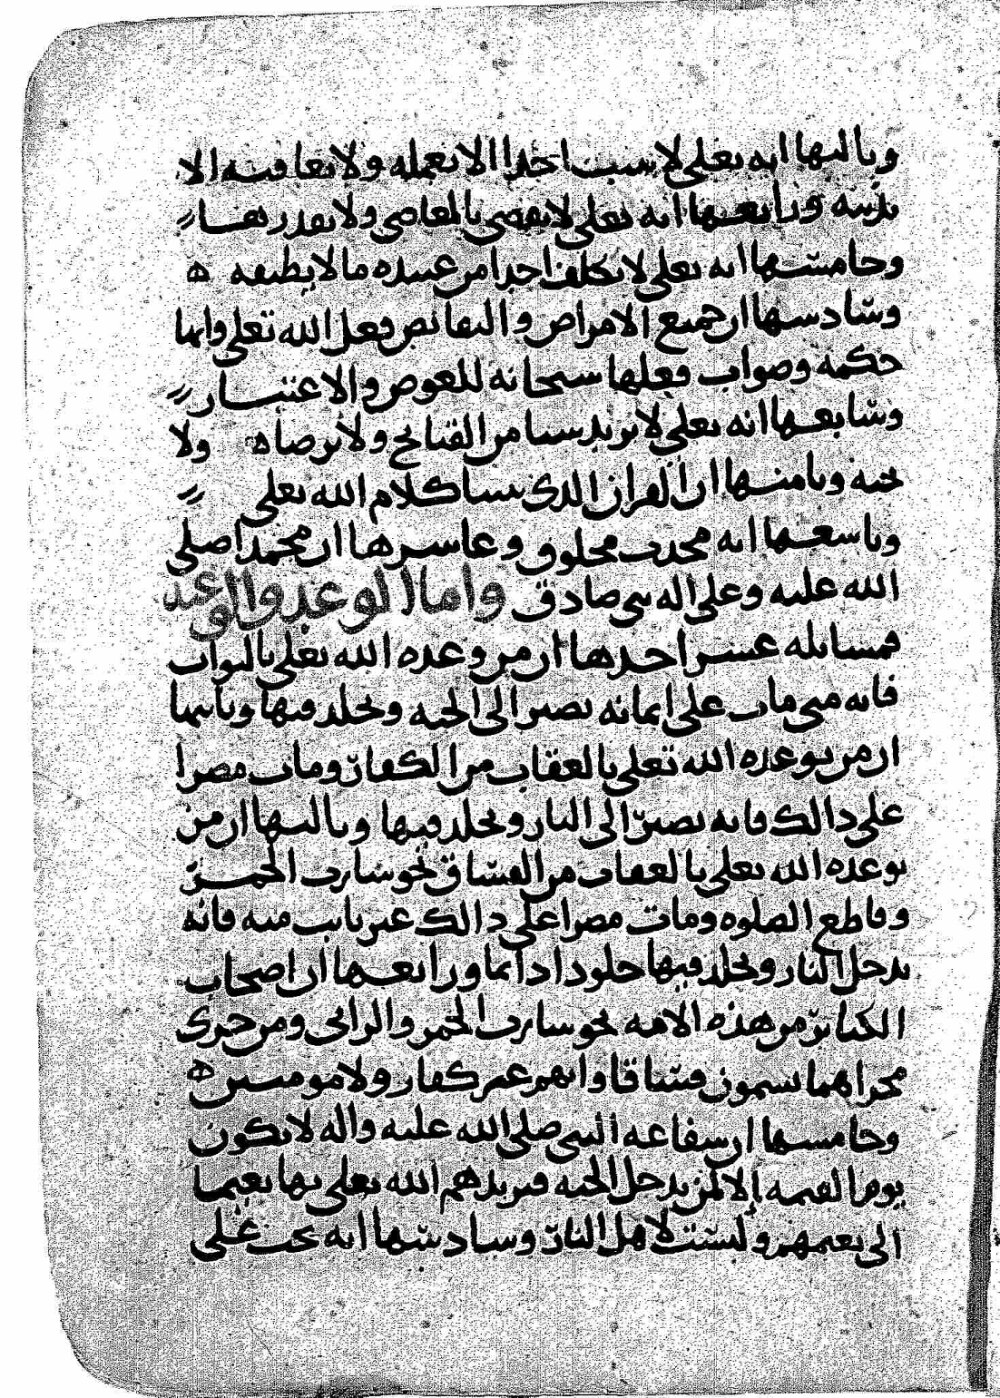 وثالثها انه تعلى لا يثيب احدا الا بعمله ولا يعاقبه الا
بذنبه ورابعها انه تعلى لا يقضي بالمعاصي ولا يقدر بها
وخامسها انه تعلى لا يكلف احدا من عبيده ما لا يطيقه ه
وسادسها ان جميع الامراض والنقائص فعل الله تعلى وانها
حكمة وصواب فعلها سبحانه للعوض والاعتبار
وسابعها انه تعلى لا يريد شيئا من القبائح ولا يرضاه ولا
يحبه وثامنها ان القران الذي بيننا كلام الله تعلى
وتاسعها انه محدث مخلوق وعاشرها ان محمدا صلى
الله عليه وعلى اله نبي صادق واما الوعد والوعيد
فمسائله عشر احدها ان من وعده الله تعلى بالثواب
فانه متى مات على ايمانه يصير الى الجنه ويخلد فيها وثانيها
ان من توعده الله تعلى بالعقاب من الكفار ومات مصرا
على ذالك فانه يصير الى النار ويخلد فيها وثالثها ان من
توعده الله تعلى بالعقاب من الفساق نحو شارب الخمر
وقاطع الصلوه ومات مصرا على ذالك غير تايب منه فانه
يدخل النار ويخلد فيها خلودا دائما ورابعها ان اصحاب
الكبائر من هذه الامه نحو شارب الخمر والزاني ومن جرى
مجراهما يسمون فساقا وانهم غير كفار ولا مومنين ه
وخامسها ان شفاعه النبي صلى الله عليه واله لا تكون
يوم القيمه الا لمن يدخل الجنه فيزيدهم الله تعلى بها نعيما
الى نعيمهم وليست لاهل النار وسادسها انه يجب على